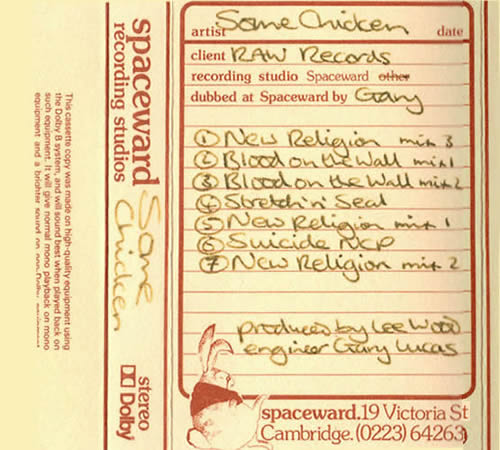 This cassette copy was made on high-quality equipment using
the Dolby B system, and will sound best when played back on
such equipment. It will give normal mono playback on mono
equipment and a brighter sound on non-Dolby equipment
spaceward
recording studios
Some
Chicken
stereo
Dolby
artist Some Chicken date
client RAW Records
recording studio Spaceward other
dubbed at Spaceward by Gary
① New Religion mix 3
② Blood on the Wall mix 1
③ Blood on the Wall mix 2
④ Stretch 'n' Seal
⑤ New Religion mix 1
⑥ Suicide NCP
⑦ New Religion mix 2
produced by Lee Wood
engineer Gary Lucas
spaceward. 19 Victoria St
Cambridge. (0223) 64263